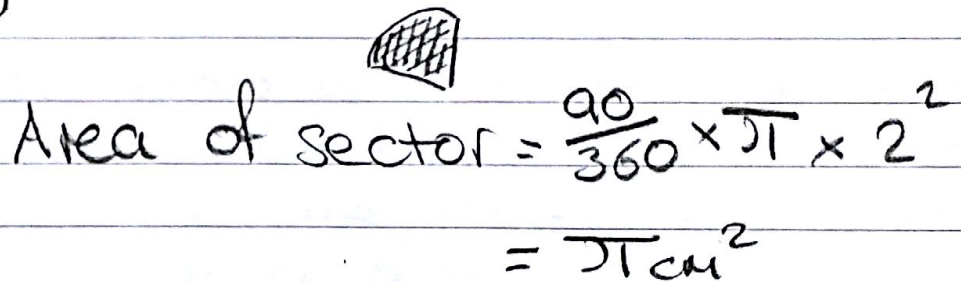 Area of sector = 90/360 × π × 2²
= π cm²